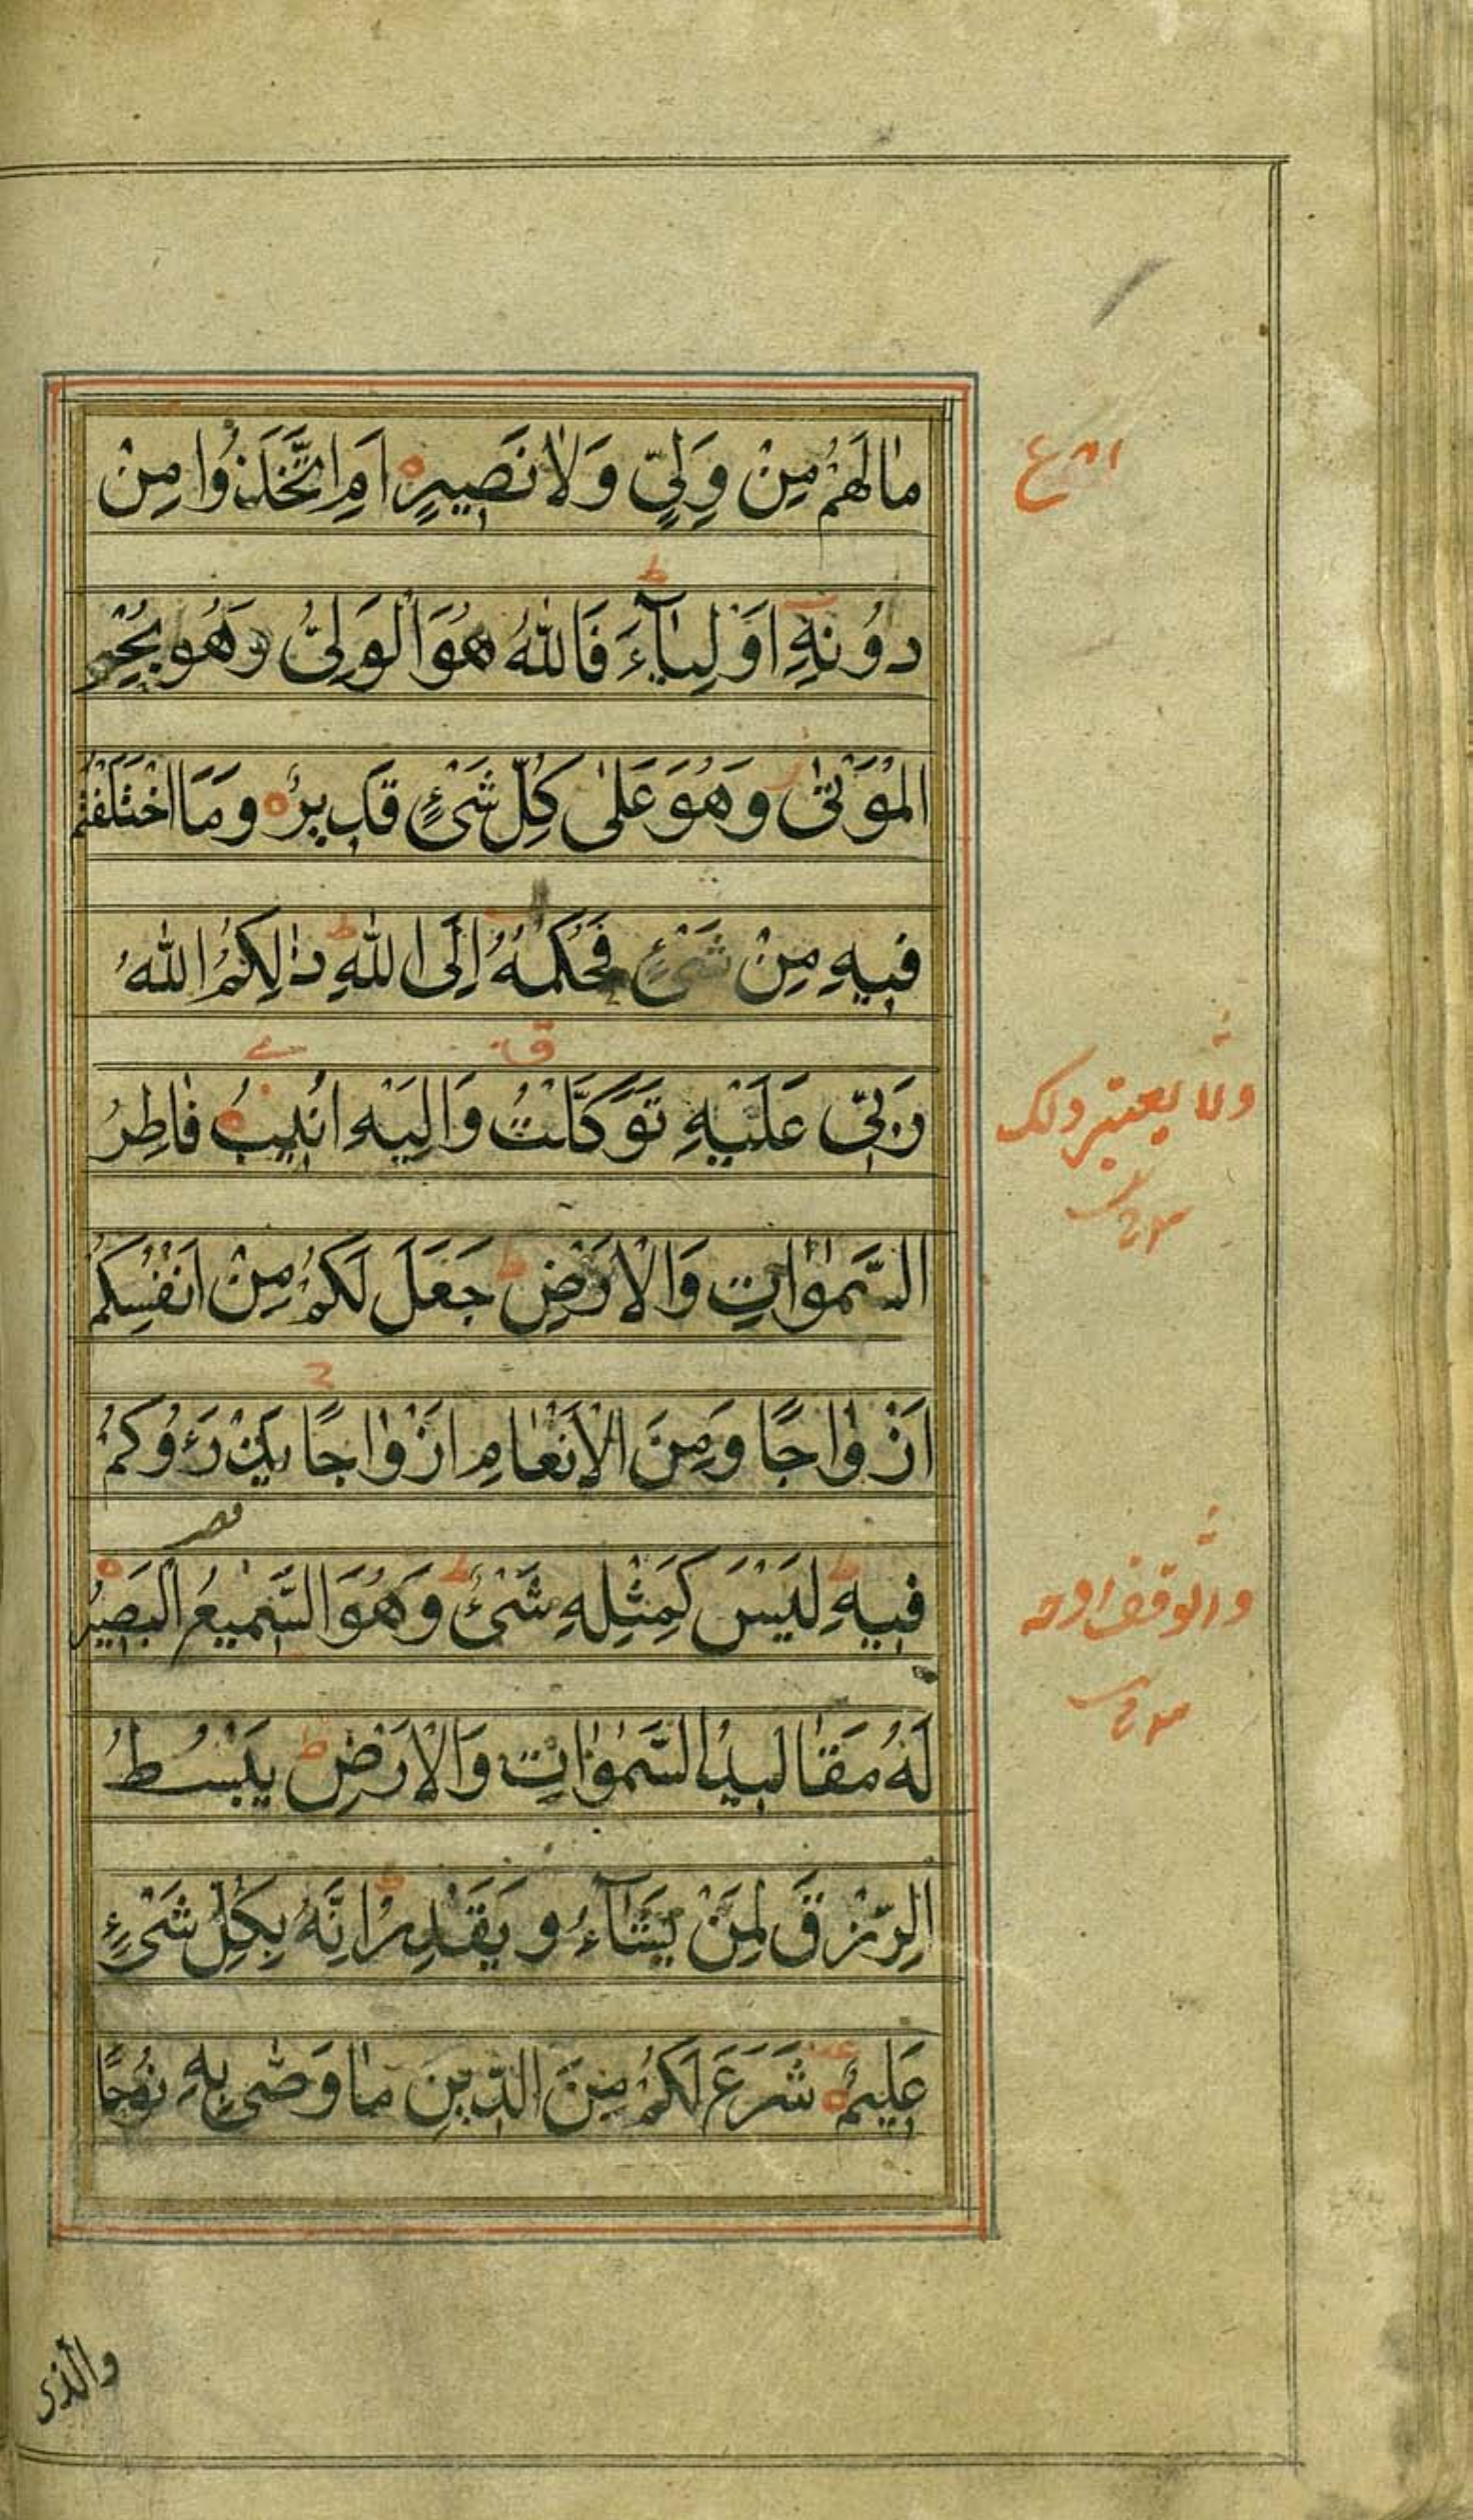 مٰالَهُمْ مِنْ وَلِيٍّ وَلٰا نَصِيرٍ اَمِ اتَّخَذُوا مِنْ
دُونِهِ اَوْلِيٰٓاءَ فَاللّٰهُ هُوَ الْوَلِيُّ وَهُو يُحْيِ
الْمَوْتٰى وَهُوَ عَلٰى كُلِّ شَىْءٍ قَدِيرٌ وَمَا اخْتَلَفْتُمْ
فِيهِ مِنْ شَىْءٍ فَحُكْمُهُ اِلَى اللّٰهِ ذٰلِكُمُ اللّٰهُ
رَبِّي عَلَيْهِ تَوَكَّلْتُ وَاِلَيْهِ اُنِيبُ فٰاطِرُ
السَّمٰوٰاتِ وَالْاَرْضِ جَعَلَ لَكُمْ مِنْ اَنْفُسِكُمْ
اَزْوٰاجًا وَمِنَ الْاَنْعٰامِ اَزْوٰاجًا يَذْرَؤُكُمْ
فِيهِ لَيْسَ كَمِثْلِهِ شَىْءٌ وَهُوَ السَّمِيعُ الْبَصِيرُ
لَهُ مَقٰالِيدُ السَّمٰوٰاتِ وَالْاَرْضِ يَبْسُطُ
الرِّزْقَ لِمَنْ يَشٰٓاءُ وَيَقْدِرُ اِنَّهُ بِكُلِّ شَىْءٍ
عَلِيمٌ شَرَعَ لَكُمْ مِنَ الدِّينِ مٰا وَصّٰى بِهِ نُوحًا
والذى